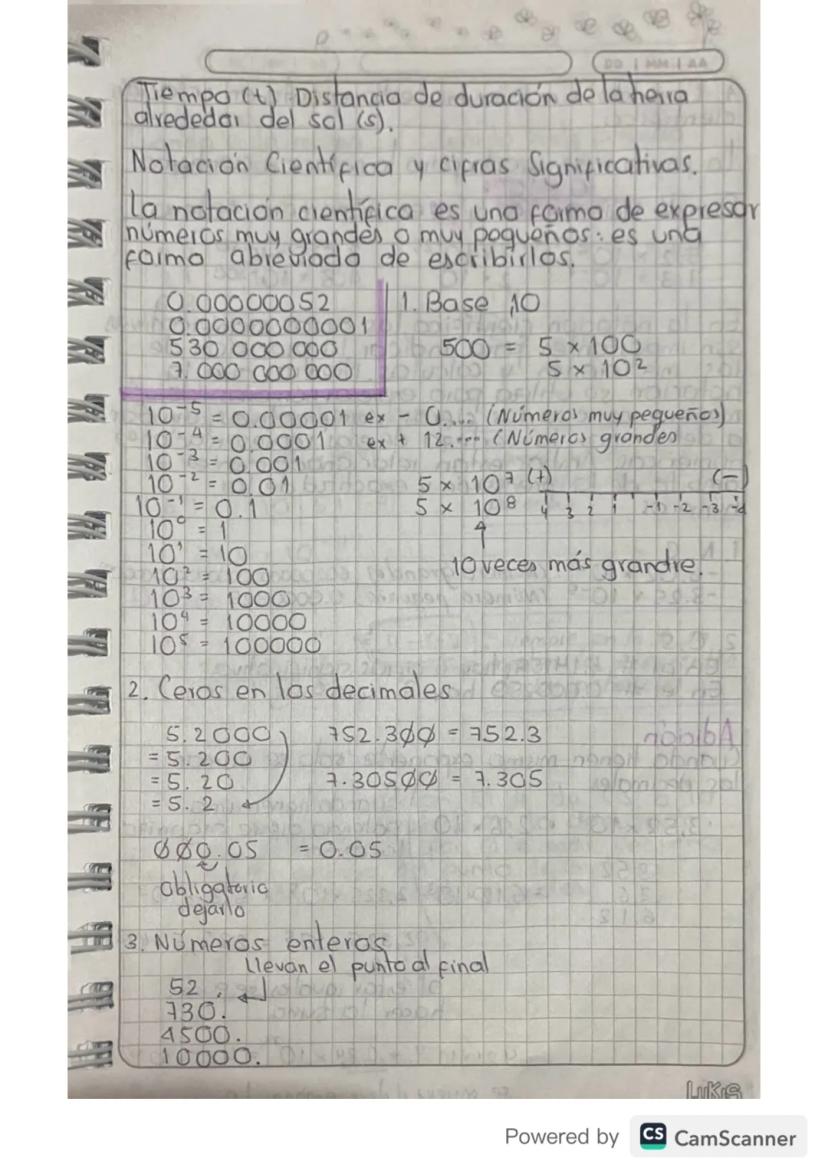 DD | MM | AA
Tiempo (t) Distancia de duración de la tierra
alrededor del sol (s).
Notación Científica y cifras Significativas.
La notación científica es una forma de expresar
números muy grandes o muy pequeños: es una
forma abreviada de escribirlos.
0.00000052
0.0000000001
530 000 000
7.000 000 000
1. Base 10
500 = 5 × 100
5 × 10²
10⁻⁵ = 0.00001 ex - 0.... (Números muy pequeños)
10⁻⁴ = 0.0001 ex + 12.... (Números grandes
10⁻³ = 0.001
10⁻² = 0.01
10⁻¹ = 0.1
10⁰ = 1
10¹ = 10
10² = 100
10³ = 1000
10⁴ = 10000
10⁵ = 100000
5 × 10⁷ (+) (-)
5 × 10⁸ 4 3 2 1 -1 -2 -3 -4
10 veces más grandre.
2. Ceros en los decimales
5.2000
= 5.200
= 5.20
= 5.2
752.300 = 752.3
7.30500 = 7.305
000.05 = 0.05
obligatorio
dejarlo
3. Números enteros
llevan el punto al final
52.
730.
4500.
10000.
LUKIS
Powered by CS CamScanner